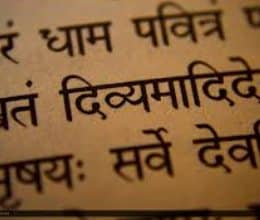 रं धाम पवित्रं प
व्रतं दिव्यमादिदे
मृषयः सर्वे देव